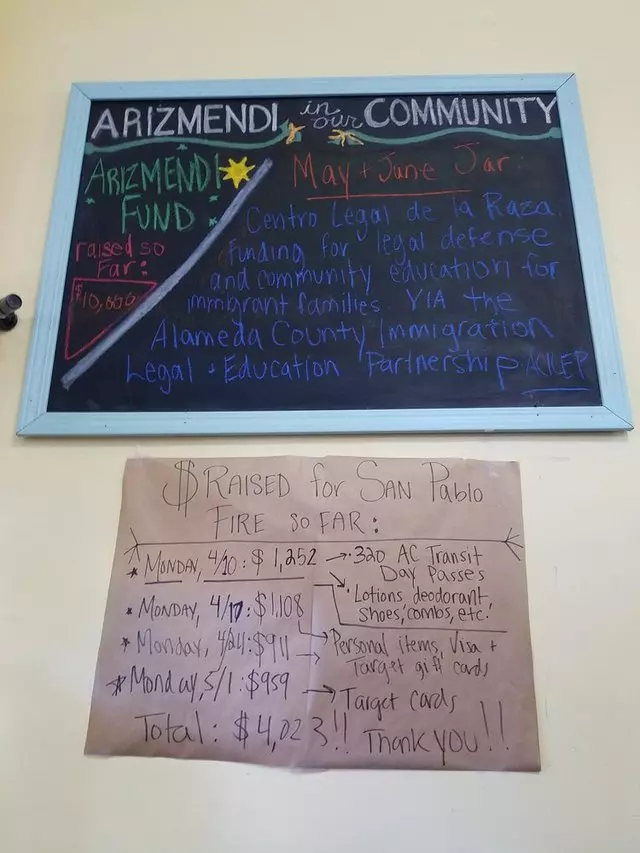 ARIZMENDI in our COMMUNITY
ARIZMENDI
FUND
raised so
far:
$10,000
May + June Jar:
Centro Legal de la Raza.
Funding for legal defense
and community education for
immigrant families VIA the
Alameda County Immigration
Legal + Education Partnership ACILEP
$ RAISED for SAN Pablo
FIRE so FAR:
MONDAY, 4/10: $1,252 → 320 AC Transit
Day Passes
Lotions, deodorant,
shoes, combs, etc.
MONDAY, 4/17: $1,108
Monday, 4/24: $911 → Personal items, Visa +
Target gift cards
Monday, 5/1: $959 → Target cards
Total: $4,023!! Thank you!!